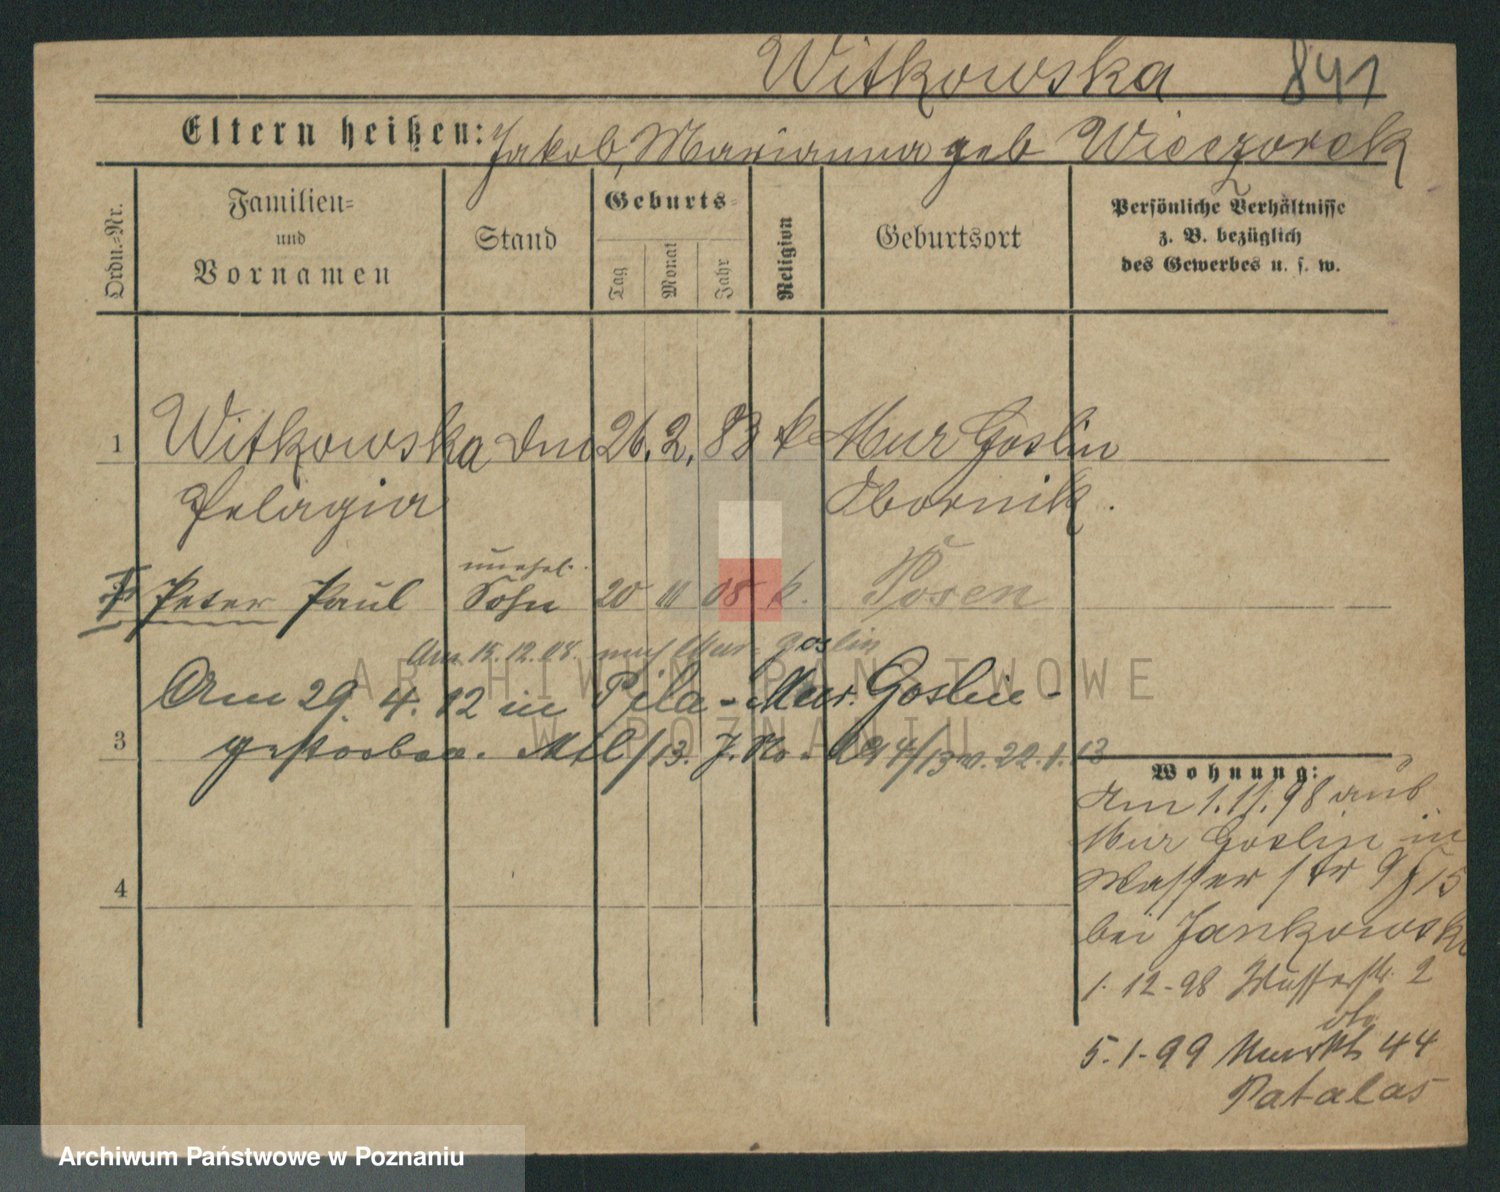 Witkowska 841
Eltern heißen: Jakob, Marianna geb Wieczorek
Ordn.=Nr.
Familien=
und
Vornamen
Stand
Geburts=
Tag
Monat
Jahr
Religion
Geburtsort
Persönliche Verhältnisse
z. B. bezüglich
des Gewerbes u. s. w.
1 Witkowska 26. 2. 83 k Mur Goslin
Pelagia Obornik.
unehel.
Peter Paul Sohn 20 III 08 k. Posen
Am 15.12.08. nach Mur. Goslin
Am 29. 4. 12 in Pila-Mur. Goslin-
3 gestorben. Mtl/13. J. No. 22.1.13
4
Wohnung:
Am 1.11.98 aus
Mur Goslin in
Wasser str 15
bei Jankowski
1.12-98 Wasserstr. 2
5.1-99 Markt 44
Patalas
ARCHIWUM PAŃSTWOWE
W POZNANIU
Archiwum Państwowe w Poznaniu